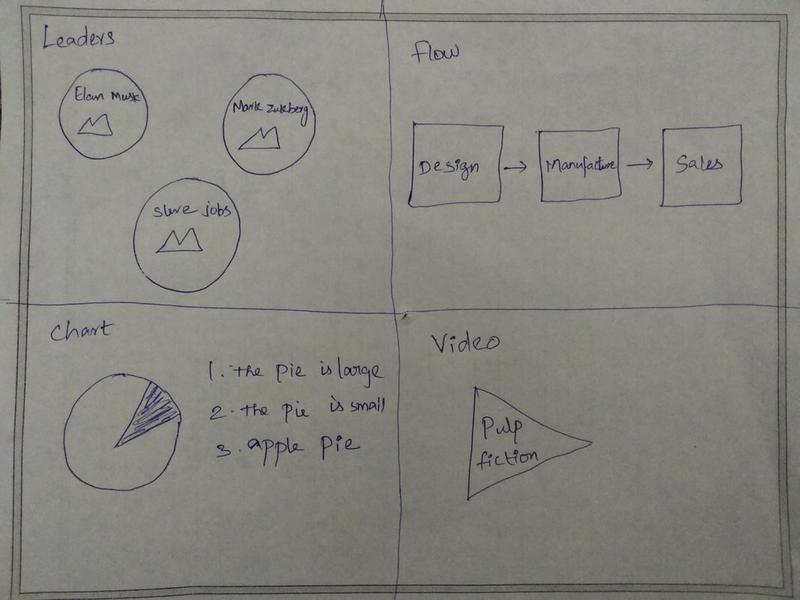 Leaders
Elan Musk
Mark Zukberg
steve jobs
flow
Design
Manufacture
Sales
Chart
1. the pie is large
2. the pie is small
3. apple pie
Video
Pulp
fiction